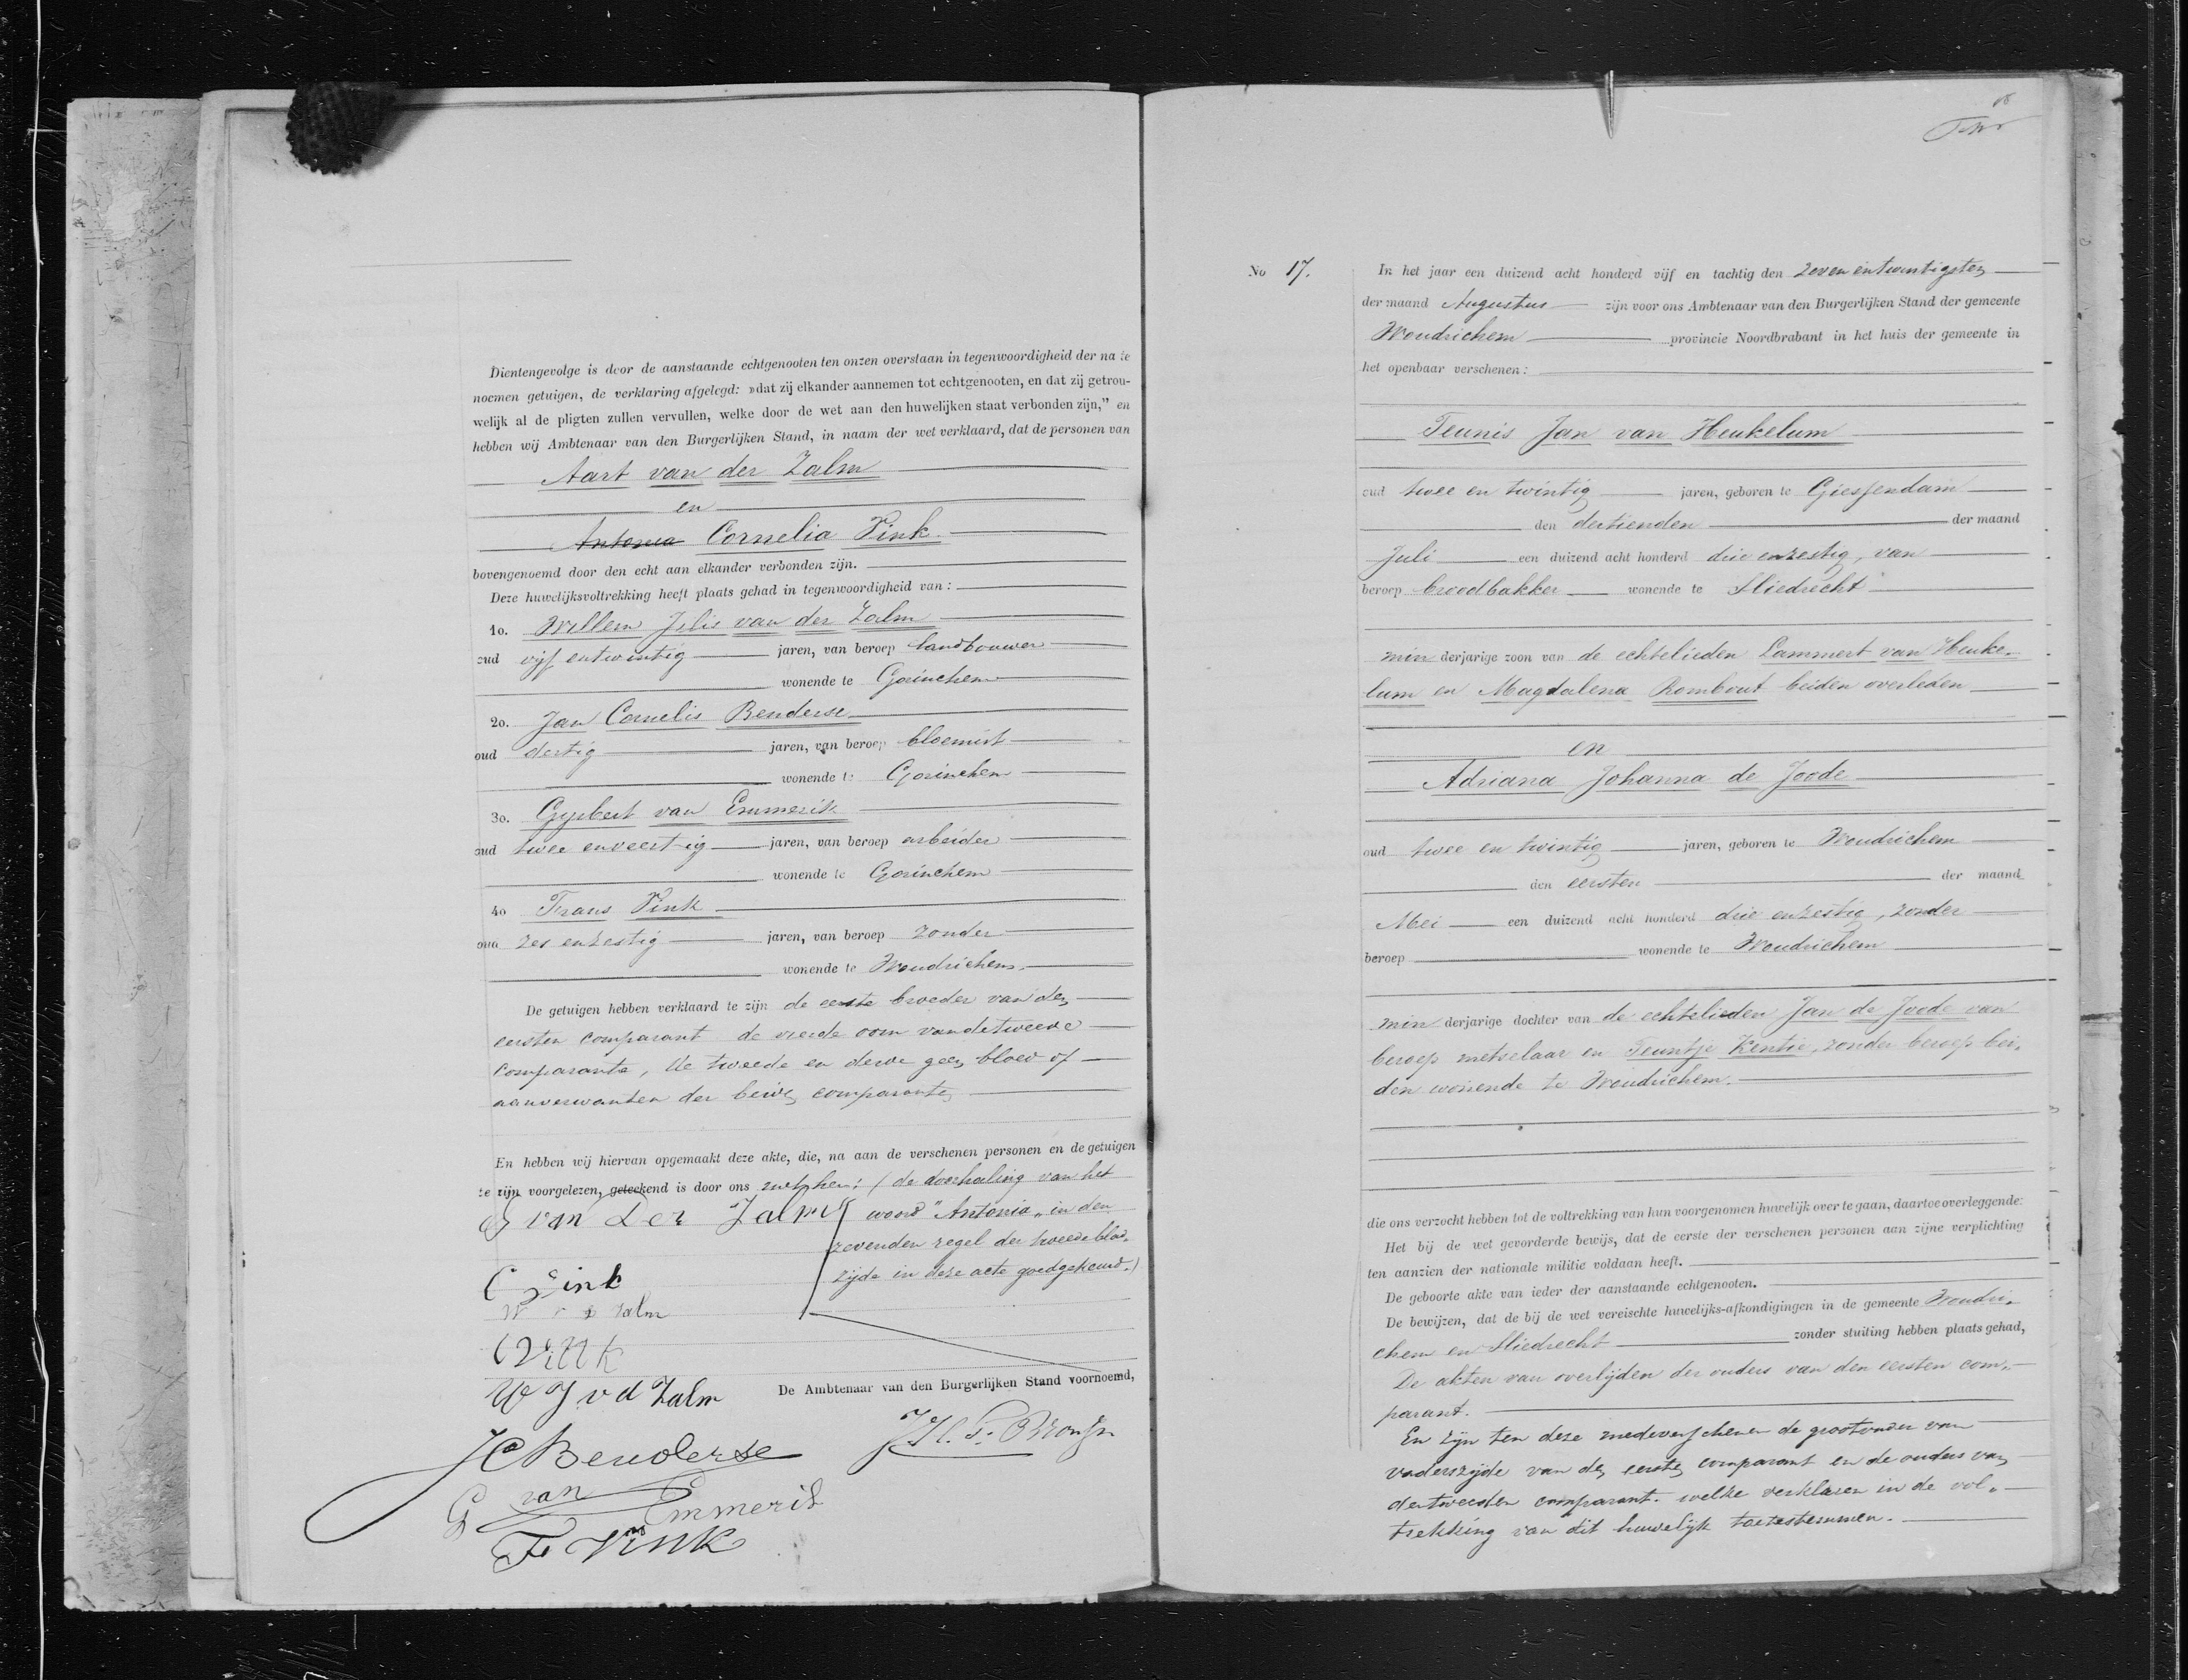 Dientengevolge is door de aanstaande echtgenooten ten onzen overstaan in tegenwoordigheid der na te
noemen getuigen, de verklaring afgelegd: »dat zij elkander aannemen tot echtgenooten, en dat zij getrou-
welijk al de pligten zullen vervullen, welke door de wet aan den huwelijken staat verbonden zijn,” en
hebben wij Ambtenaar van den Burgerlijken Stand, in naam der wet verklaard, dat de personen van
Aart van der Zalm
en
Antonia Cornelia Vink.
bovengenoemd door den echt aan elkander verbonden zijn.
Deze huwelijksvoltrekking heeft plaats gehad in tegenwoordigheid van:
1o. Willem Jilis van der Zalm
oud vijf entwintig jaren, van beroep landbouwer
wonende te Gorinchem
2o. Jan Cornelis Benderse
oud dertig jaren, van beroep bloemist
wonende te Gorinchem
3o. Gysbert van Emmerik
oud twee enveertig jaren, van beroep arbeider
wonende te Gorinchem
4o Frans Vink
oud zes enzestig jaren, van beroep zonder
wonende te Woudrichem.
De getuigen hebben verklaard te zijn de eerste broeder van den
eersten comparant de vierde oom van de tweede
comparante, de tweede en derde geen bloed of
aanverwanten der beide comparanten
En hebben wij hiervan opgemaakt deze akte, die, na aan de verschenen personen en de getuigen
te zijn voorgelezen, geteekend is door ons met hen: (de doorhaling van het
woord "Antonia„ in den
zevenden regel der tweede blad-
zijde in deze acte goedgekeurd.)
A van der Zalm
C Vink
W v d Zalm
C Vink
W J v d Zalm
De Ambtenaar van den Burgerlijken Stand voornoemd,
JC Benderse
G van Emmerik
F Vink
No 17.
In het jaar een duizend acht honderd vijf en tachtig den zeven entwintigsten
der maand Augustus zijn voor ons Ambtenaar van den Burgerlijken Stand der gemeente
Woudrichem provincie Noordbrabant in het huis der gemeente in
het openbaar verschenen:
Teunis Jan van Heukelum
oud twee en twintig jaren, geboren te Giessendam
den dertienden der maand
Juli een duizend acht honderd drie enzestig, van
beroep broodbakker wonende te Sliedrecht
min derjarige zoon van de echtelieden Lammert van Heuke-
lum en Magdalena Rombout beiden overleden
en
Adriana Johanna de Joode
oud twee en twintig jaren, geboren te Woudrichem
den eersten der maand
Mei een duizend acht honderd drie enzestig, zonder
beroep wonende te Woudrichem
min derjarige dochter van de echtelieden Jan de Joode van
beroep metselaar en Teuntje Kentie, zonder beroep bei-
den wonende te Woudrichem.
die ons verzocht hebben tot de voltrekking van hun voorgenomen huwelijk over te gaan, daartoe overleggende:
Het bij de wet gevorderde bewijs, dat de eerste der verschenen personen aan zijne verplichting
ten aanzien der nationale militie voldaan heeft.
De geboorte akte van ieder der aanstaande echtgenooten.
De bewijzen, dat de bij de wet vereischte huwelijks-afkondigingen in de gemeente Woudri-
chem en Sliedrecht zonder stuiting hebben plaats gehad,
De akten van overlijden der ouders van den eersten com-
parant.
En zijn ten deze medeverschenen de grootvader van
vaderszijde van den eersten comparant en de ouders van
den tweeden comparant. welke verklaren in de vol-
trekking van dit huwelijk toetestemmen.